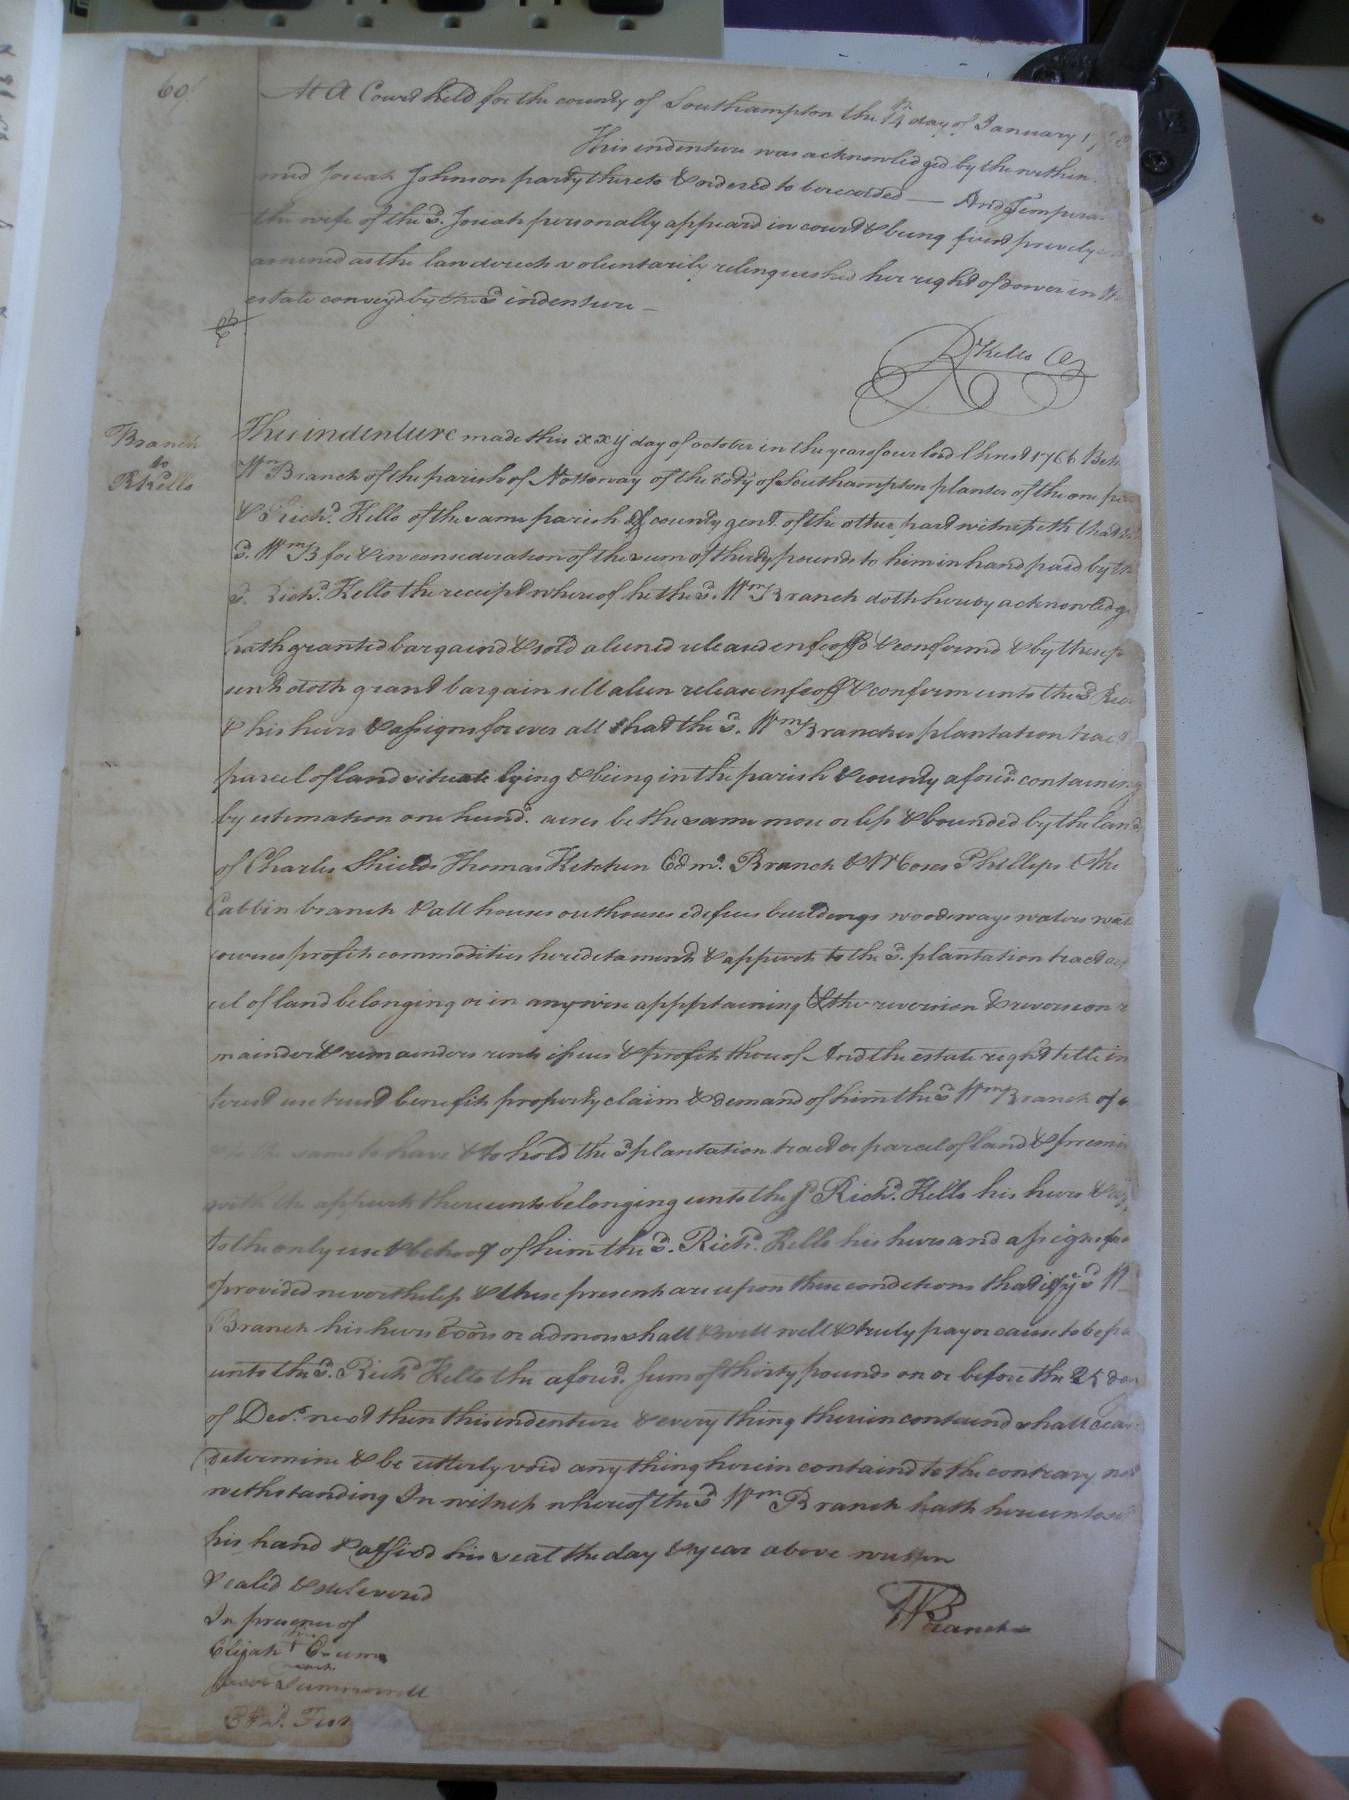 60
At A Court held for the county of Southampton the 14 day of January 1
This indenture was acknowledged by the within
med Josiah Johnson party thereto & ordered to be recorded — And Tempera
the wife of the sd. Josiah personally appeard in court & being first prively
amined as the law directs voluntarily relinquished her right of dower in th
estate conveyd by the sd indenture —
RKello C
Branch
to
RKello
This indenture made this xxij day of october in the year of our lord Christ 1766 Betw
Wm Branch of the parish of Nottoway of the Coty of Southampton planter of the one pa
& Richd. Kello of the same parish & county gent. of the other part witnesseth that
sd. Wm B for & in consideration of the sum of thirty pounds to him in hand paid by th
sd. Richd. Kello the receipt whereof he the sd. Wm Branch doth hereby acknowledg
hath granted bargaind & sold aliened released enfeoffd & confirmd & by these p
sents doth grant bargain sell alien release enfeoff & confirm unto the sd Ric
& his heirs & assigns forever all that the sd. Wm Branches plantation tract
parcel of land situate lying & being in the parish & county aforesd containing
by estimation one hund. acres be the same more or less & bounded by the land
of Charles Shields Thomas Kitchen Edmd. Branch & Moses Phillips & the
Cabbin branch & all houses outhouses edifices buildings woods ways waters wat
courses profits commodities hereditaments & appurts to the sd. plantation tract or
cel of land belonging or in any wise appertaining & the reversion & reversion r
mainder & remainders rents issues & profits thereof And the estate right title in
terest use trust benefit property claim & demand of him the sd Wm Branch of
the same to have & to hold the sd plantation tract or parcel of land & premis
with the appurts thereunto belonging unto the sd Richd. Kello his heirs &
to the only use & behoof of him the sd. Richd. Kello his heirs and assigns for
provided nevertheless & these presents are upon these conditions that if ye sd W
Branch his heirs Exors or admors shall & will well & truly pay or cause to be pa
unto the sd. Richd Kello the aforesd. sum of thirty pounds on or before the 25 day
of Decr. next then this indenture & every thing therein containd shall ceas
determine & be utterly void any thing herein containd to the contrary not
withstanding In witness whereof the sd Wm Branch hath hereunto set
his hand & affixd his seal the day & year above written
Sealed & deliverd
In presence of
WBranch
Elijah Crume
Jacob Summerell